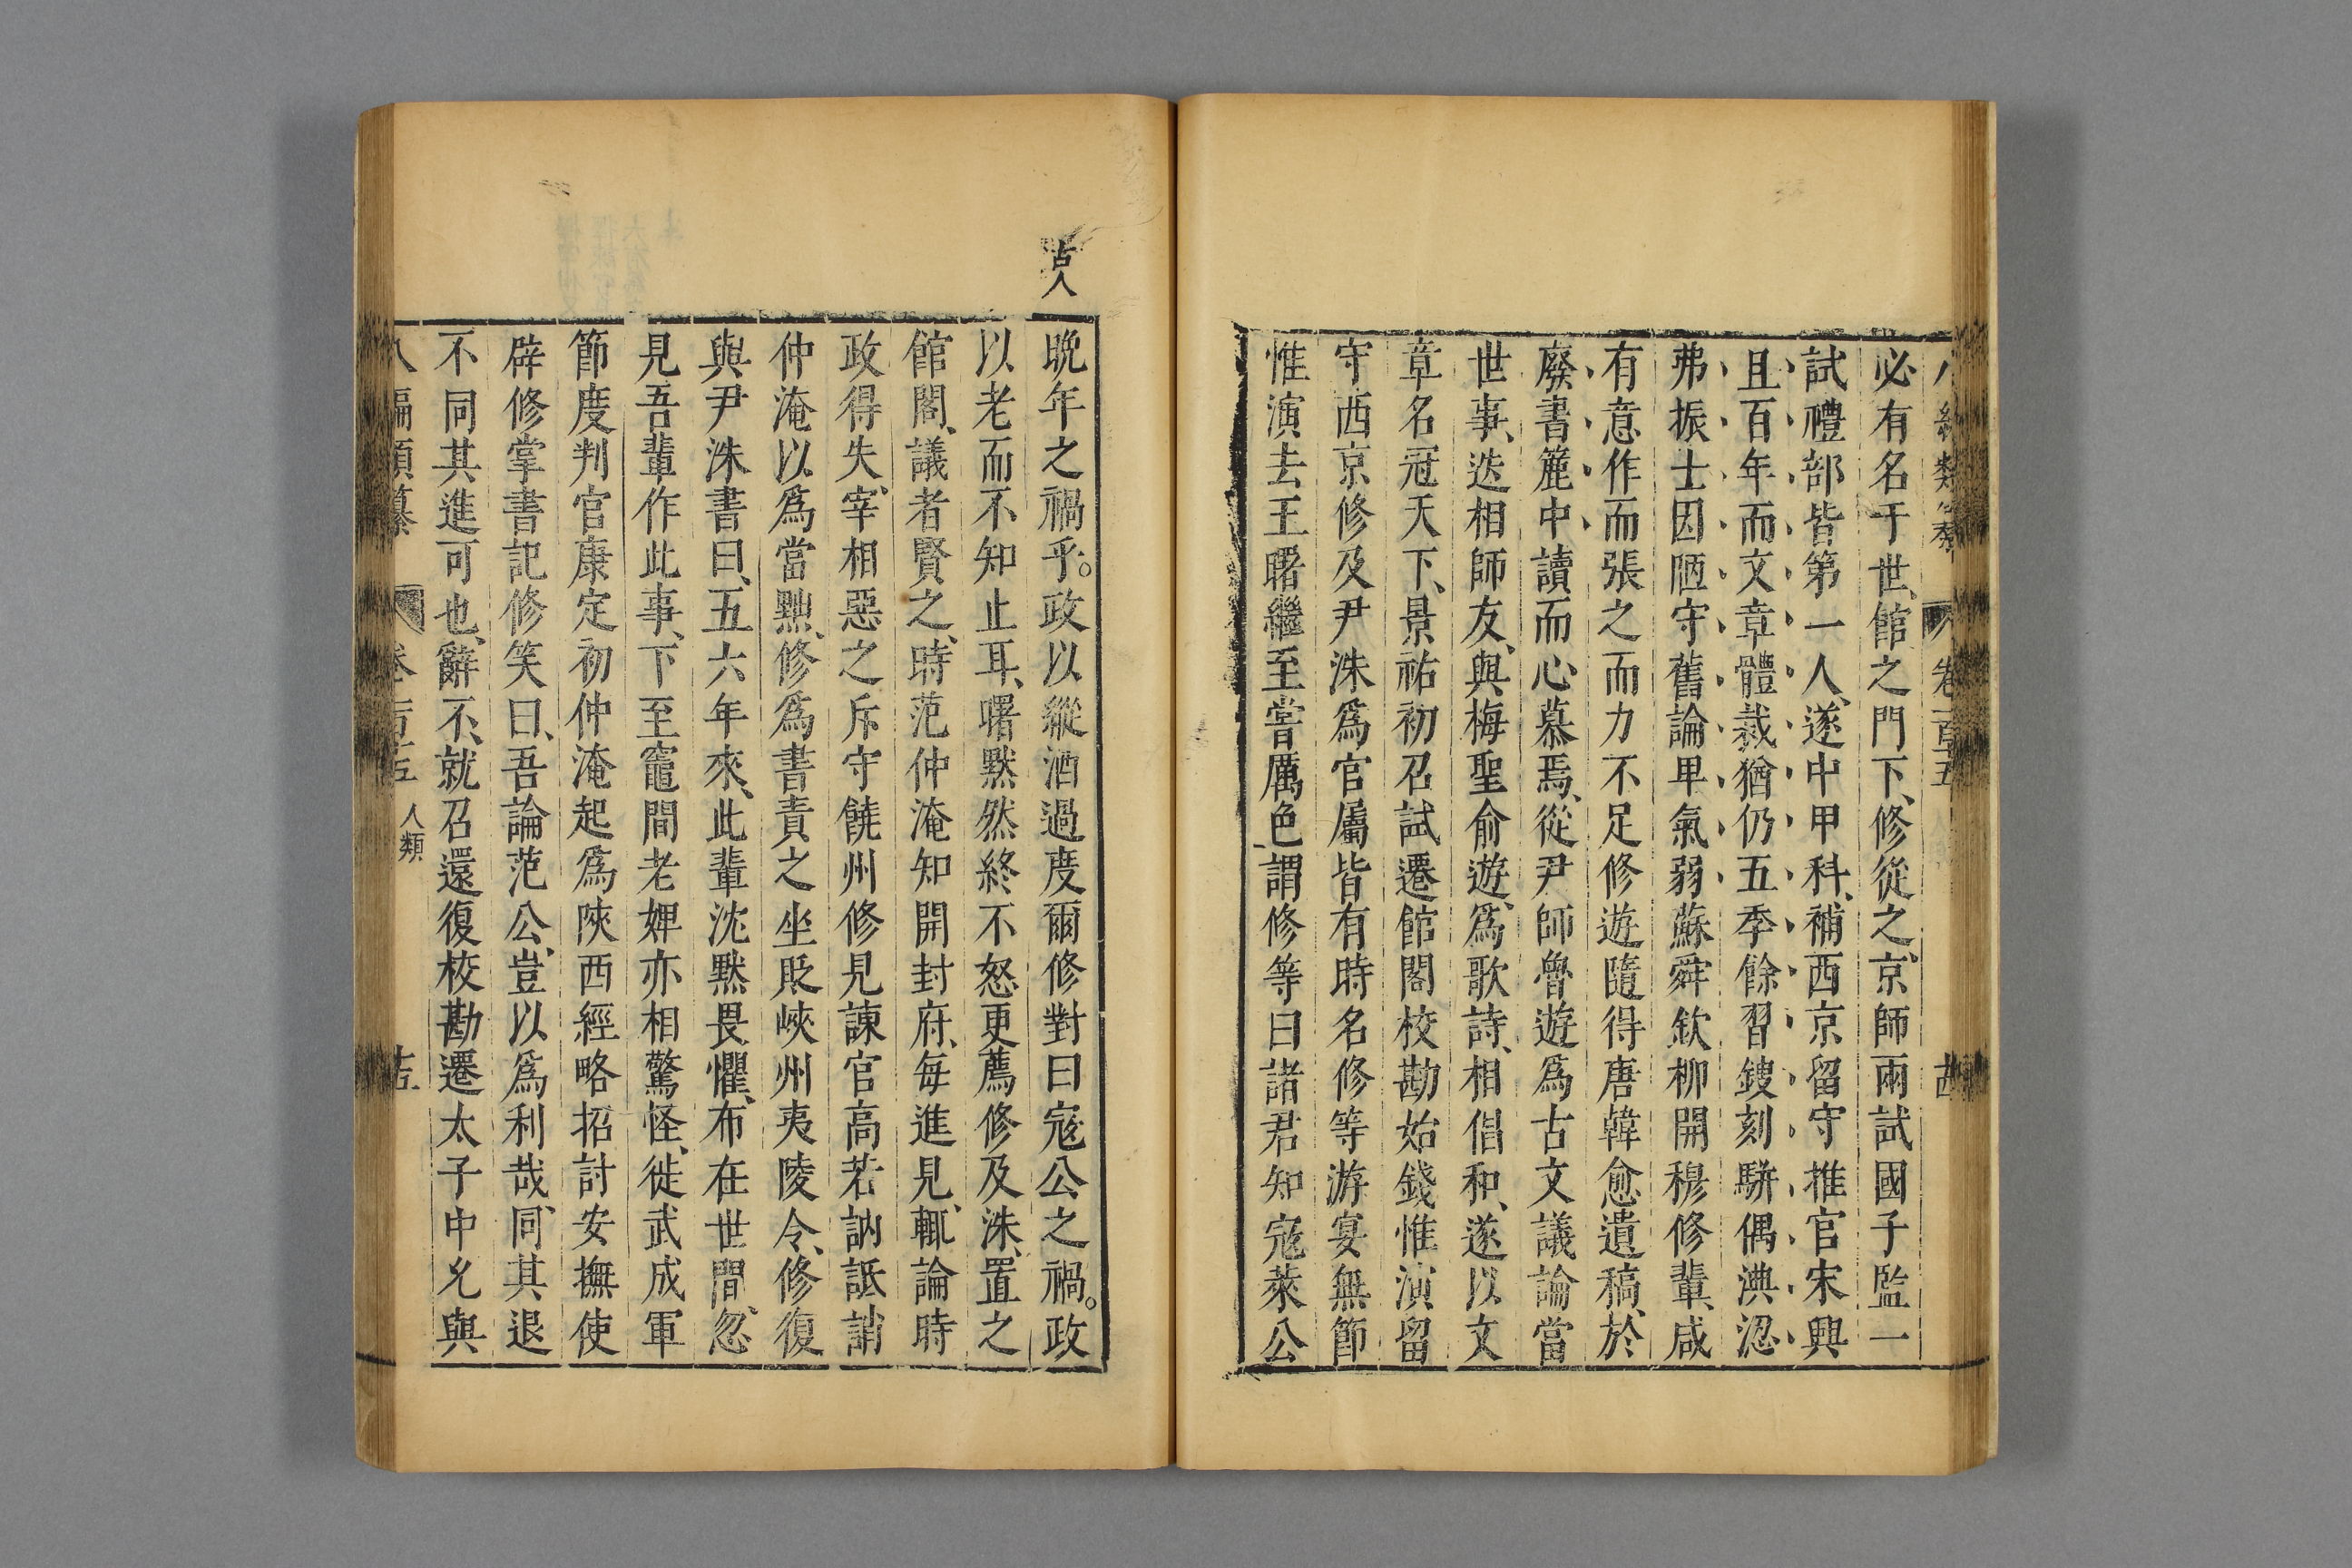 必有名于世、館之門下、修從之、京師兩試國子監一
試禮部皆第一人、遂中甲科、補西京留守推官宋興
且百年而文章體裁猶仍五季餘習鎪刻駢偶淟涊
弗振士因陋守舊論卑氣弱蘇舜欽柳開穆修輩、咸
有意作而張之而力不足修遊隨得唐韓愈遺稿、於
廢書簏中讀而心慕焉、從尹師魯遊爲古文議論當
世事、迭相師友、與梅聖俞遊、爲歌詩、相倡和、遂以文
章名冠天下、景祐初召試遷館閣校勘始錢惟演留
守西京修及尹洙爲官屬皆有時名修等游宴無節
惟演去王曙繼至嘗厲色謂修等曰諸君知寇萊公
古人
晚年之禍乎。政以縱酒過度爾修對曰寇公之禍。政
以老而不知止耳、曙默然終不怒更薦修及洙、置之
館閣、議者賢之、時范仲淹知開封府、每進見、輒論時
政得失、宰相惡之斥守饒州修見諫官高若訥詆誚
仲淹以爲當黜、修爲書責之坐貶峽州夷陵令、修復
與尹洙書曰、五六年來、此輩沈默畏懼、布在世間、忽
見吾輩作此事、下至竈間老婢亦相驚怪、徙武成軍
節度判官康定初仲淹起爲陝西經略招討安撫使
辟修掌書記修笑曰、吾論范公、豈以爲利哉、同其退
不同其進可也、辭不、就召還復校勘遷太子中允與
人類